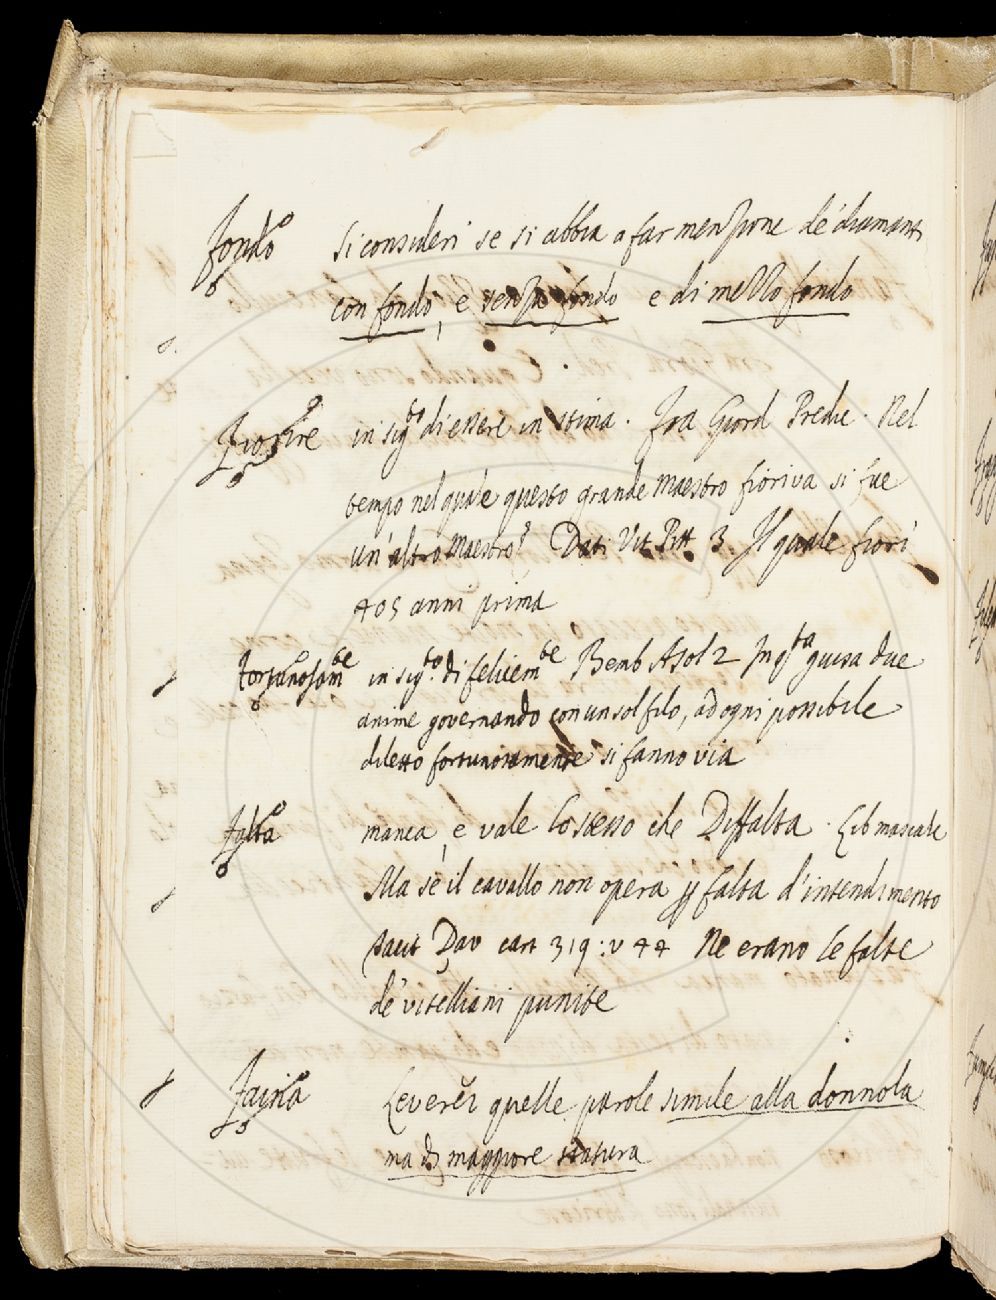 fondo Si consideri se si abbia a far menzione de' diamanti
con fondo, e senza fondo e di mezzo fondo
Fiorire in sig.to di essere in stima. Fra Giord Predic. Nel
tempo nel quale questo grande Maestro fioriva si fue
un'altro Maestro? Dati Vit Pitt 3. Il quale fiorì
405 anni prima
fortunosamte in sig.to di felicemte Bemb Asol 2 In qta guisa due
anime governando con un sol filo, ad ogni possibile
diletto fortunosamente si fanno via
falta manca, e vale lo stesso che Diffalta. Lib mascalc
Ma se il cavallo non opera p falta d'intendimento
Tacit Dav cart 319: v 44 Ne erano le falte
de' vitelliani punite
faina Leverei quelle parole simile alla donnola
ma di maggiore statura